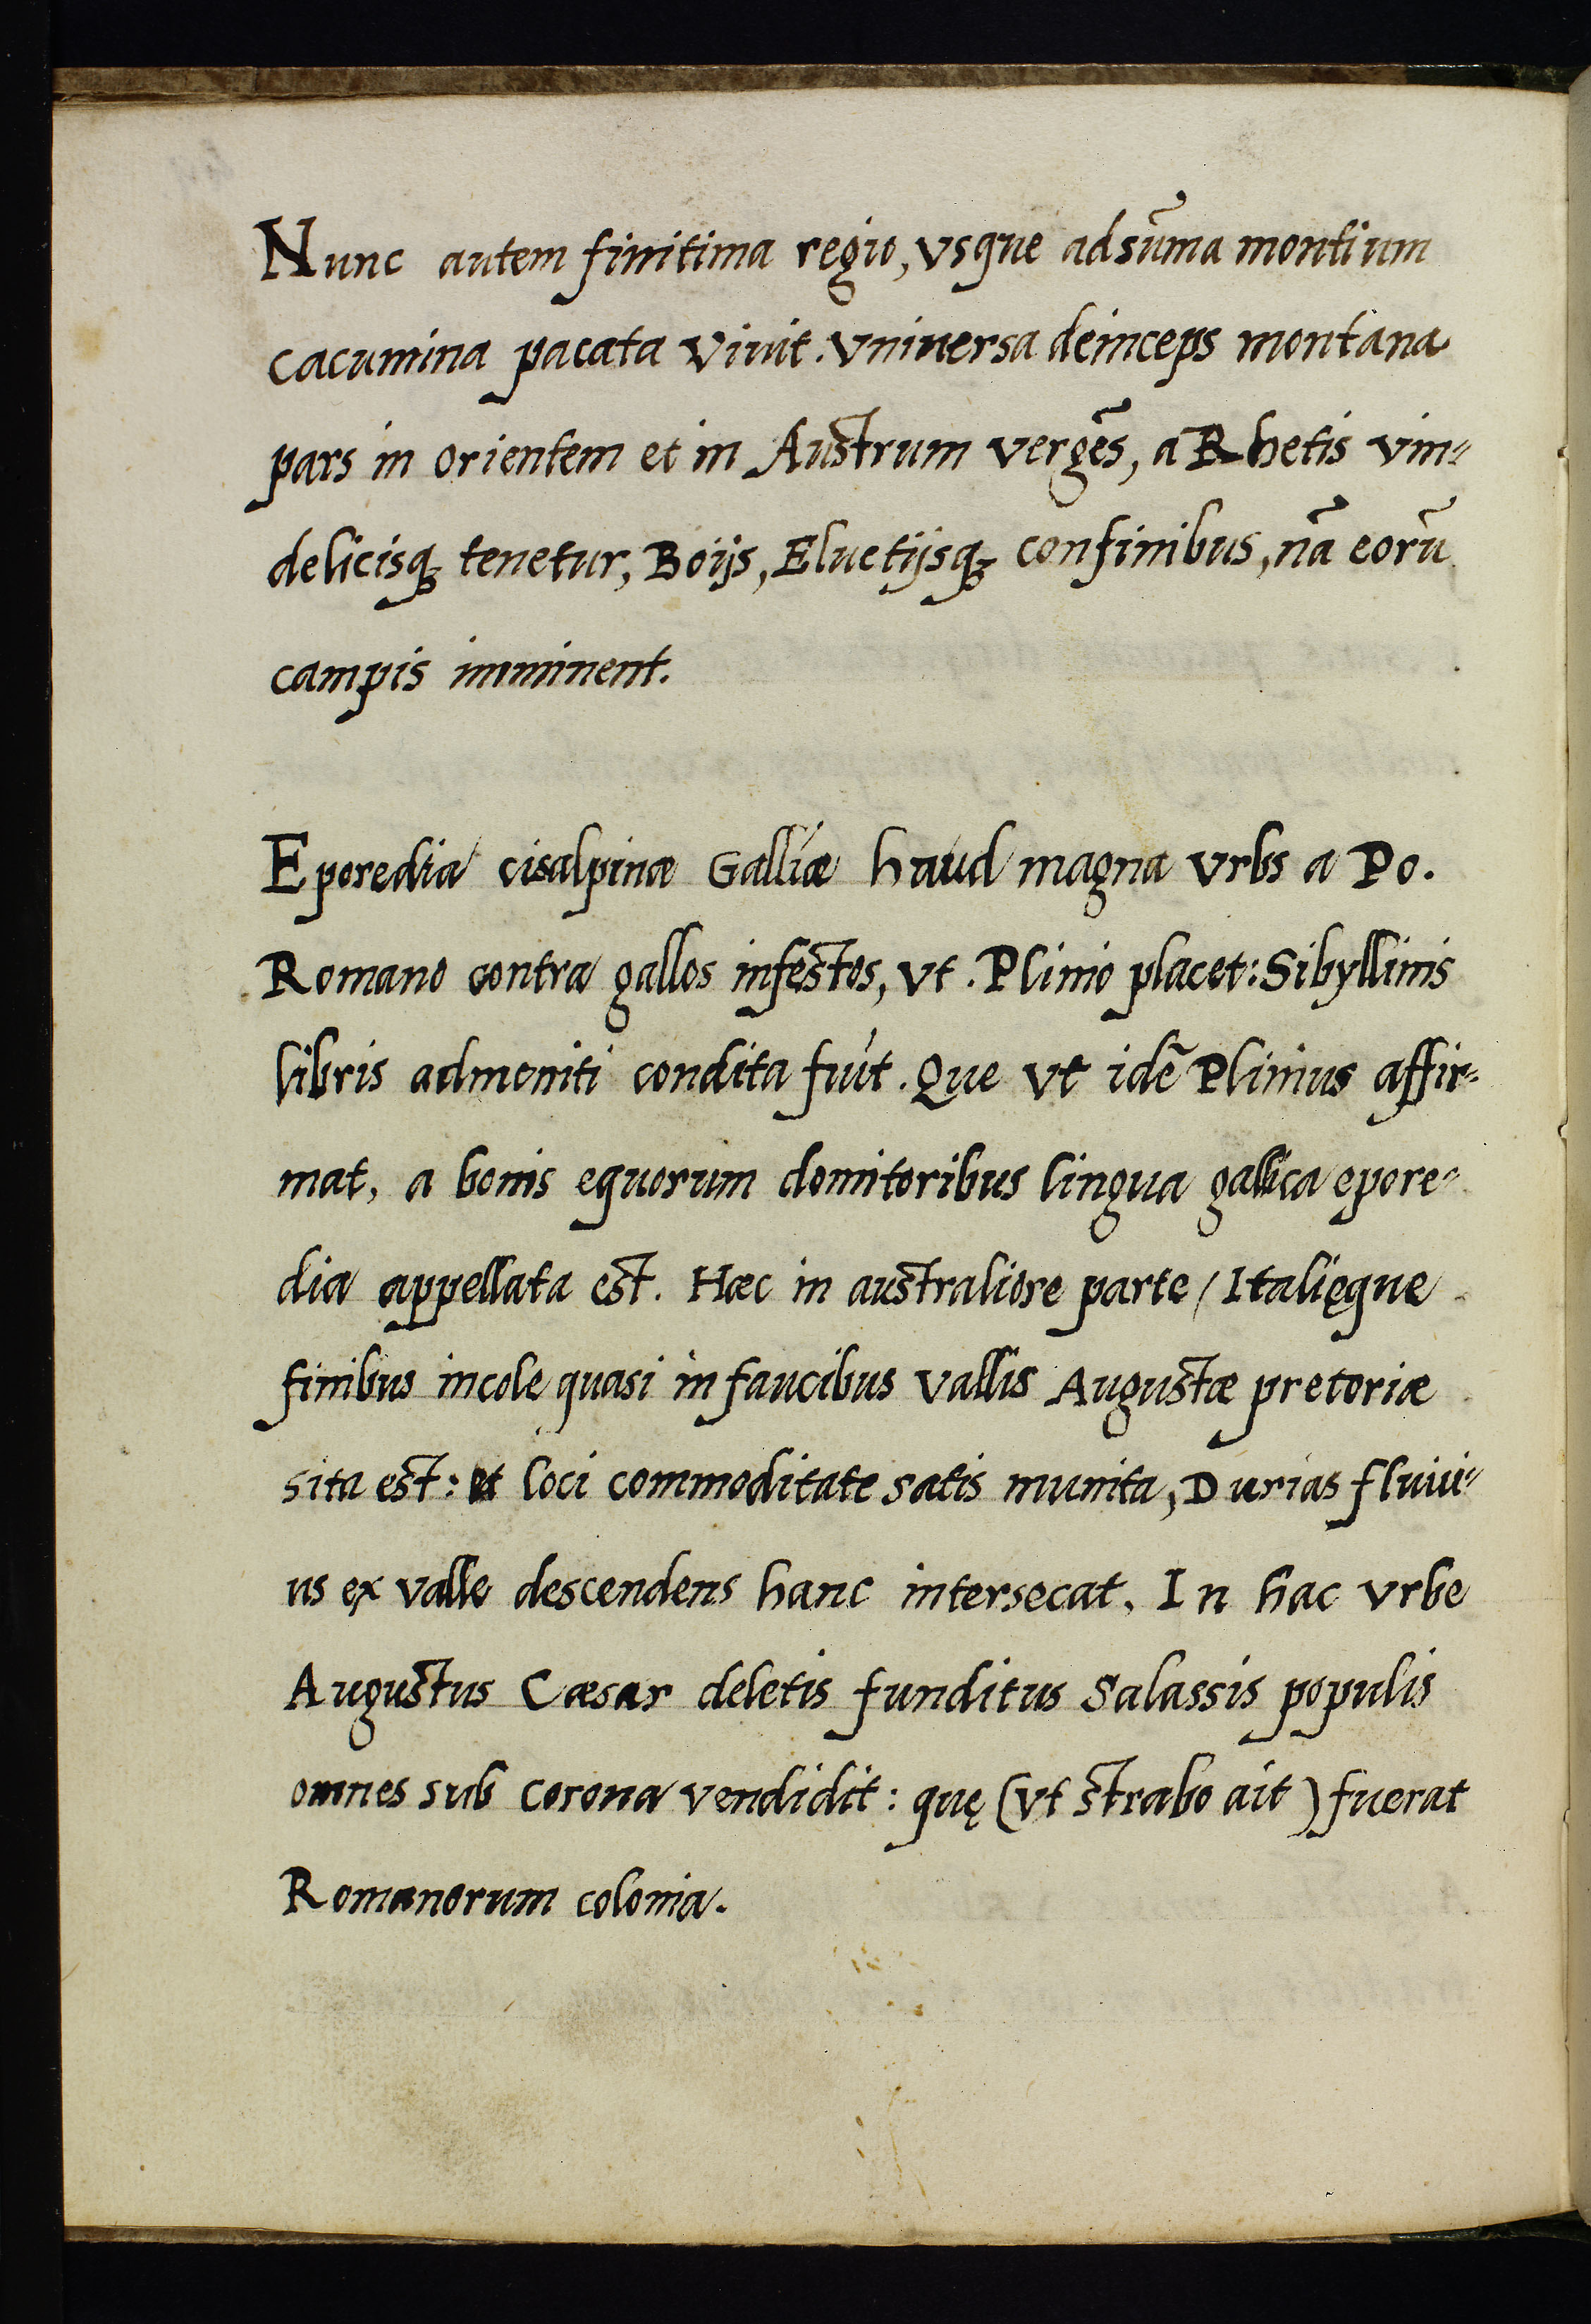 Nunc autem finitima regio, vsque ad sūma montium
cacumina pacata viuit. vniuersa deinceps montana
pars in orientem et in Austrum vergēs, a Rhetis vin=
delicisq; tenetur, Boijs, Eluetijsq; confinibus, nā eorū
campis imminent.
Eporedia cisalpinæ Galliæ haud magna vrbs a Po.
Romano contra gallos infestos, vt. Plinio placet: Sibyllinis
libris admoniti condita fuit. Que vt idē Plinius affir=
mat, a bonis equorum domitoribus lingua gallica epore=
dia appellata est. Hæc in australiore parte / Italięque
finibus incole quasi in faucibus vallis Augustæ pretoriæ
sita est: et loci commoditate satis munita, Durias fluui=
us ex valle descendens hanc intersecat. In hac vrbe
Augustus Cæsar deletis funditus Salassis populis
omnes sub corona vendidit: quę (vt strabo ait) fuerat
Romanorum colonia.